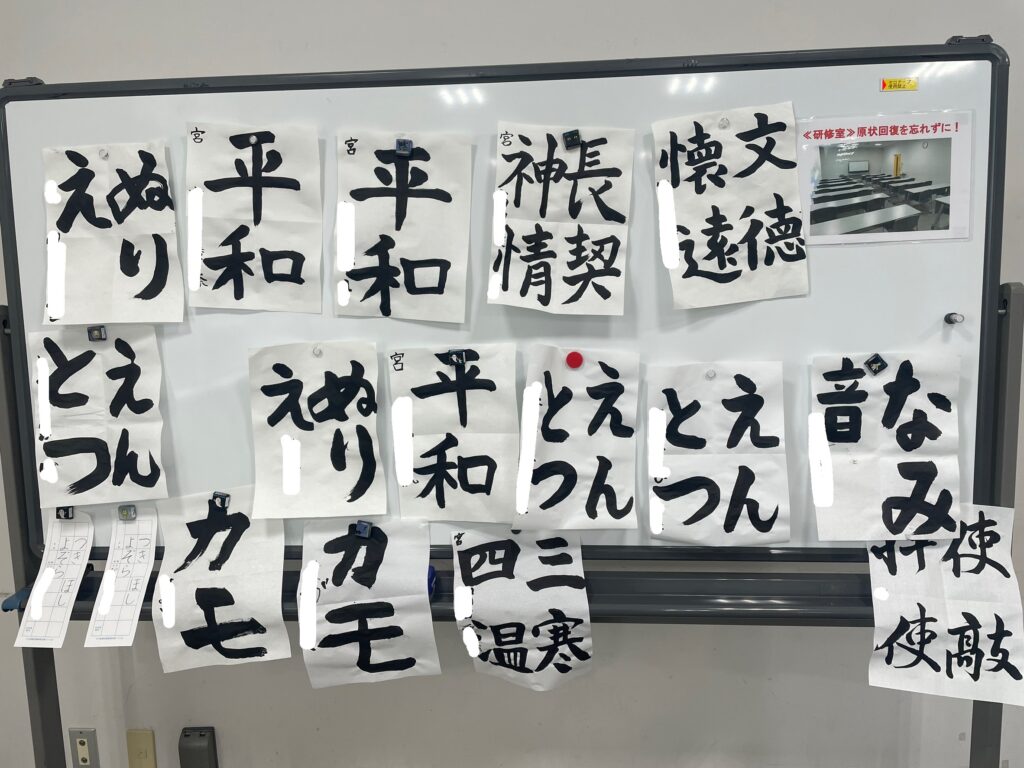 ぬり
え
宮
平和
宮
平和
宮
長契
神情
文徳
懐遠
≪研修室≫原状回復を忘れずに！
えん
とつ
ぬり
え
宮
平和
えん
とつ
えん
とつ
なみ
音
つき ほし
よぞら
つき ほし
よぞら
カモ
カモ
宮
三寒
四温
使敲
使